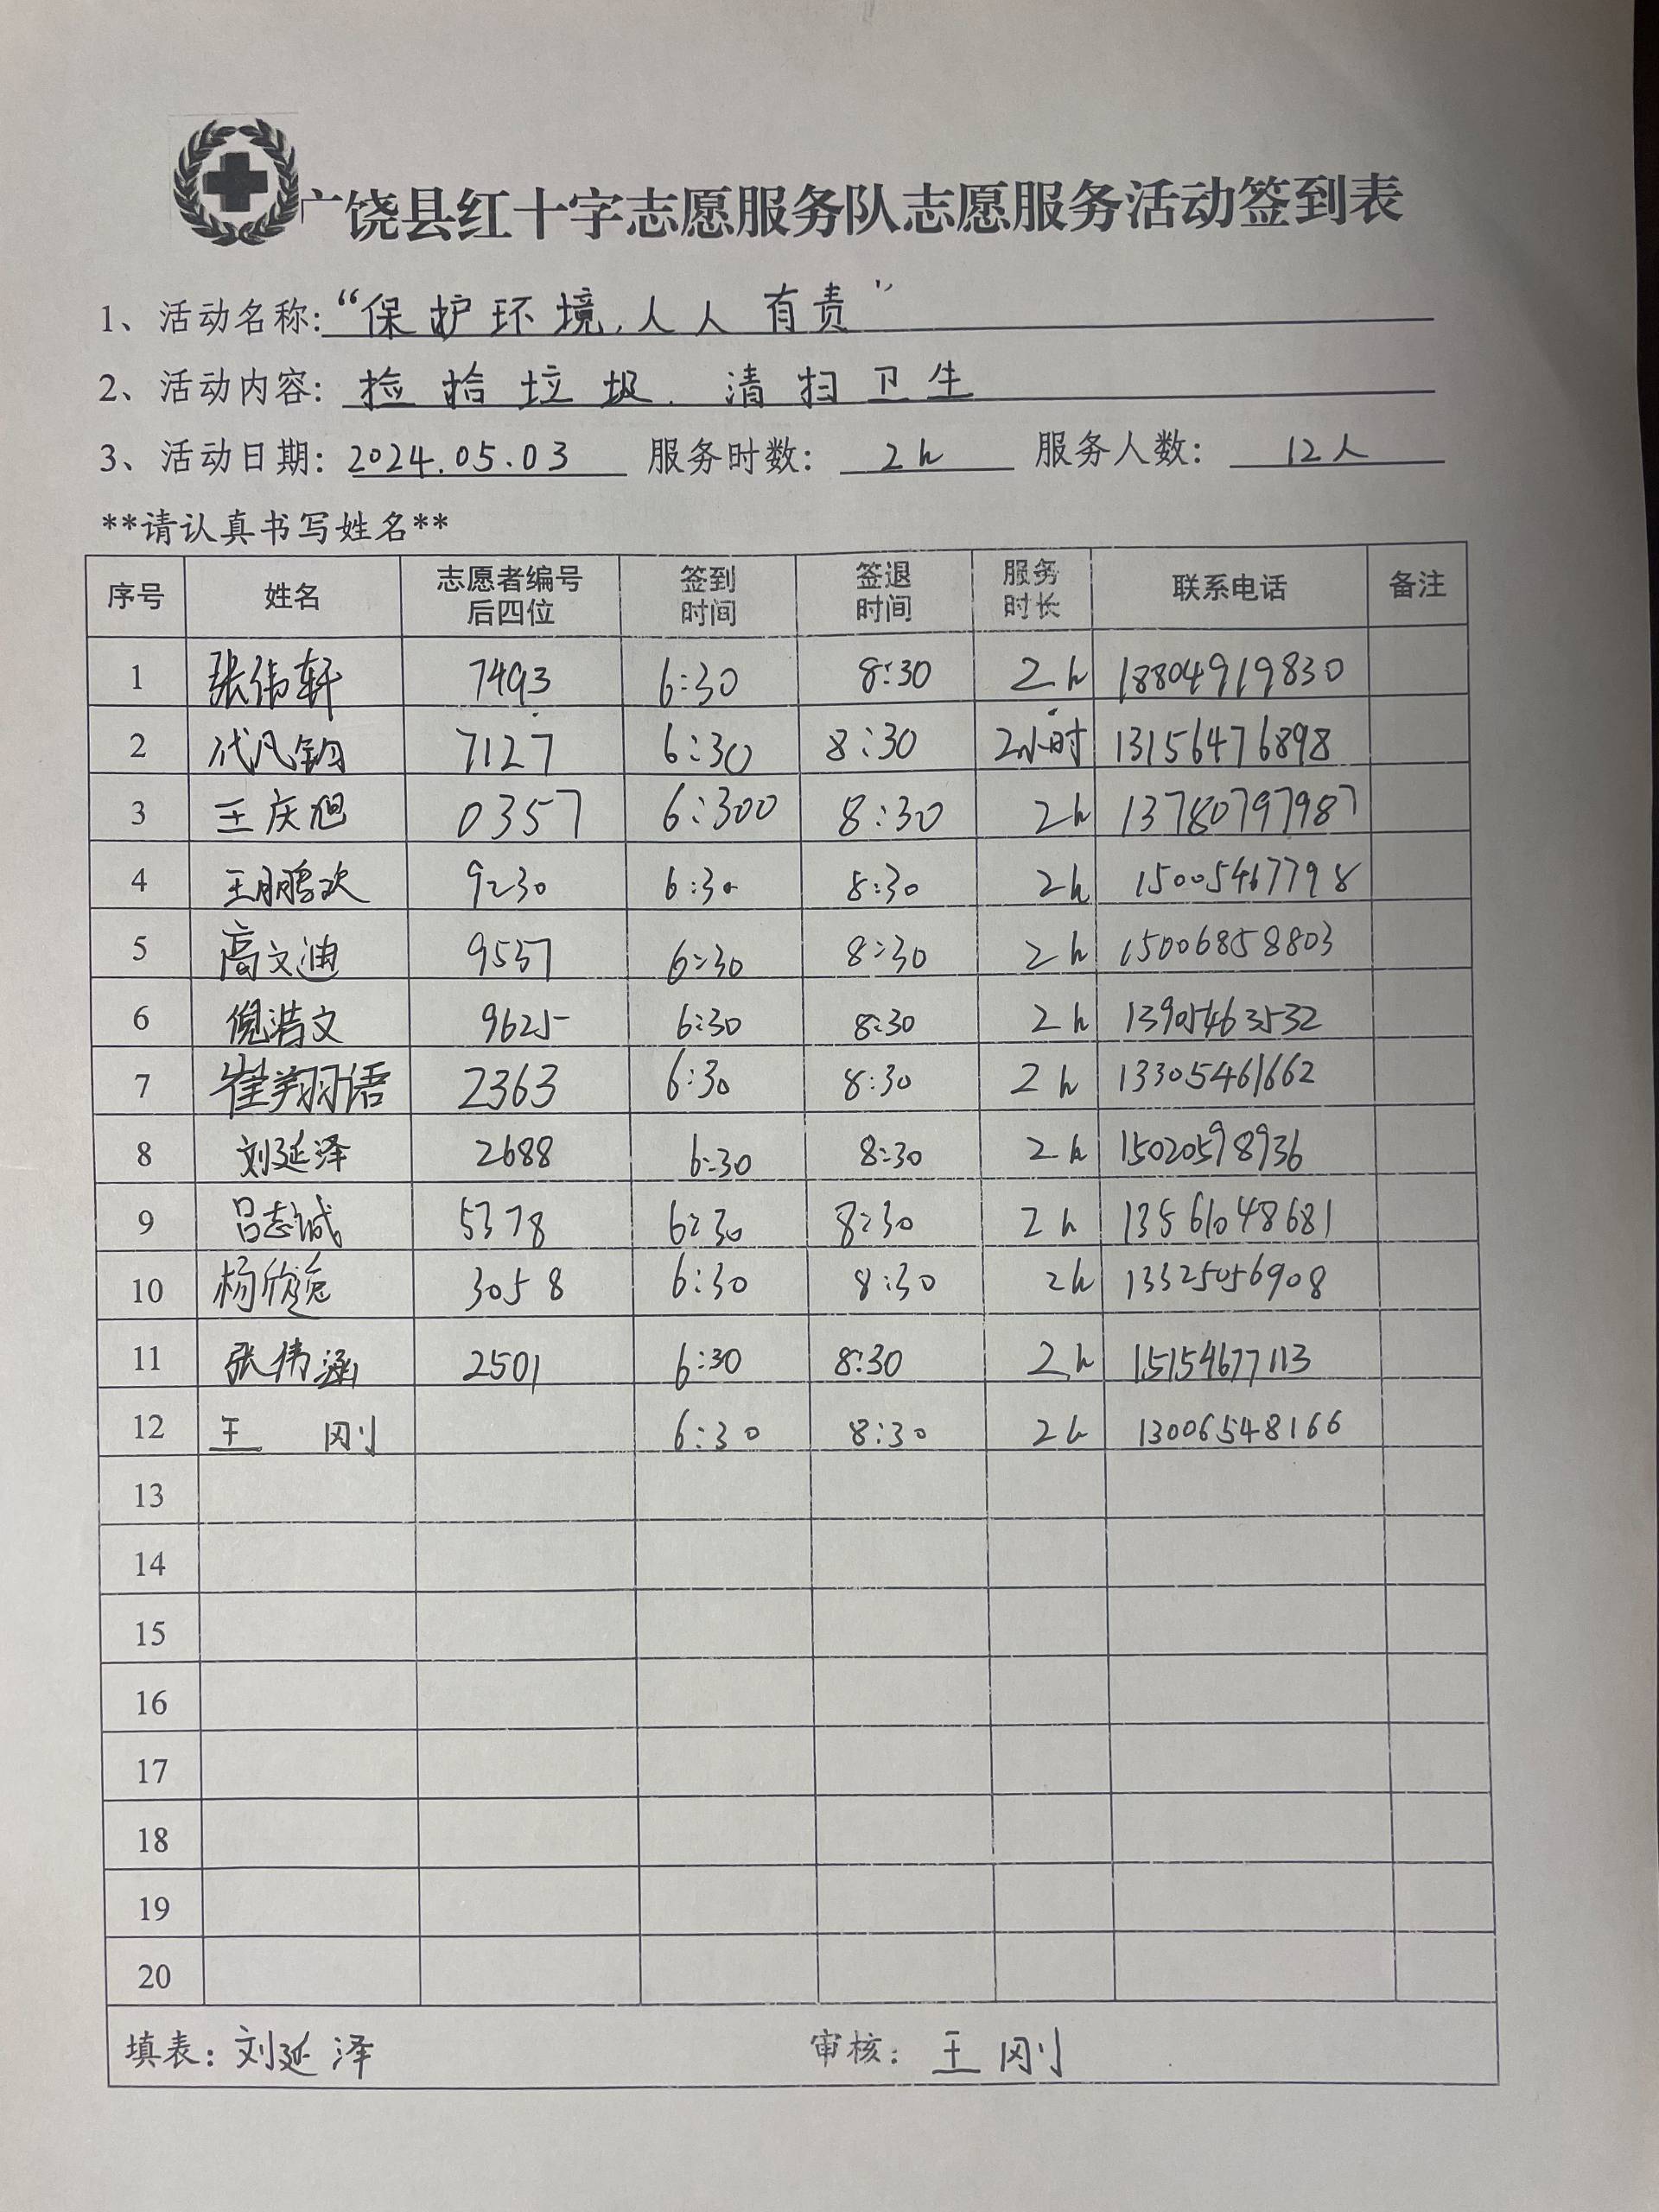 广饶县红十字志愿服务队志愿服务活动签到表
1、活动名称:“保护环境,人人有责”
2、活动内容: 捡拾垃圾. 清扫卫生
3、活动日期: 2024.05.03 服务时数: 2h 服务人数: 12人
**请认真书写姓名**
序号 姓名 志愿者编号后四位 签到时间 签退时间 服务时长 联系电话 备注
1 张伟轩 7493 6:30 8:30 2h 18804919830
2 代凡钧 7127 6:30 8:30 2小时 13156476898
3 王庆旭 0357 6:300 8:30 2h 13780797987
4 王鹏欢 9230 6:30 8:30 2h 15005467798
5 高文迪 9557 6:30 8:30 2h 15006858803
6 倪浩文 9625 6:30 8:30 2h 13905463532
7 崔翔语 2363 6:30 8:30 2h 13305461662
8 刘延泽 2688 6:30 8:30 2h 15020598936
9 吕志诚 5378 6:30 8:30 2h 13561048681
10 杨欣 3058 6:30 8:30 2h 13325056908
11 张伟涵 2501 6:30 8:30 2h 15154677113
12 王刚 6:30 8:30 2h 13006548166
13
14
15
16
17
18
19
20
填表: 刘延泽 审核: 王刚